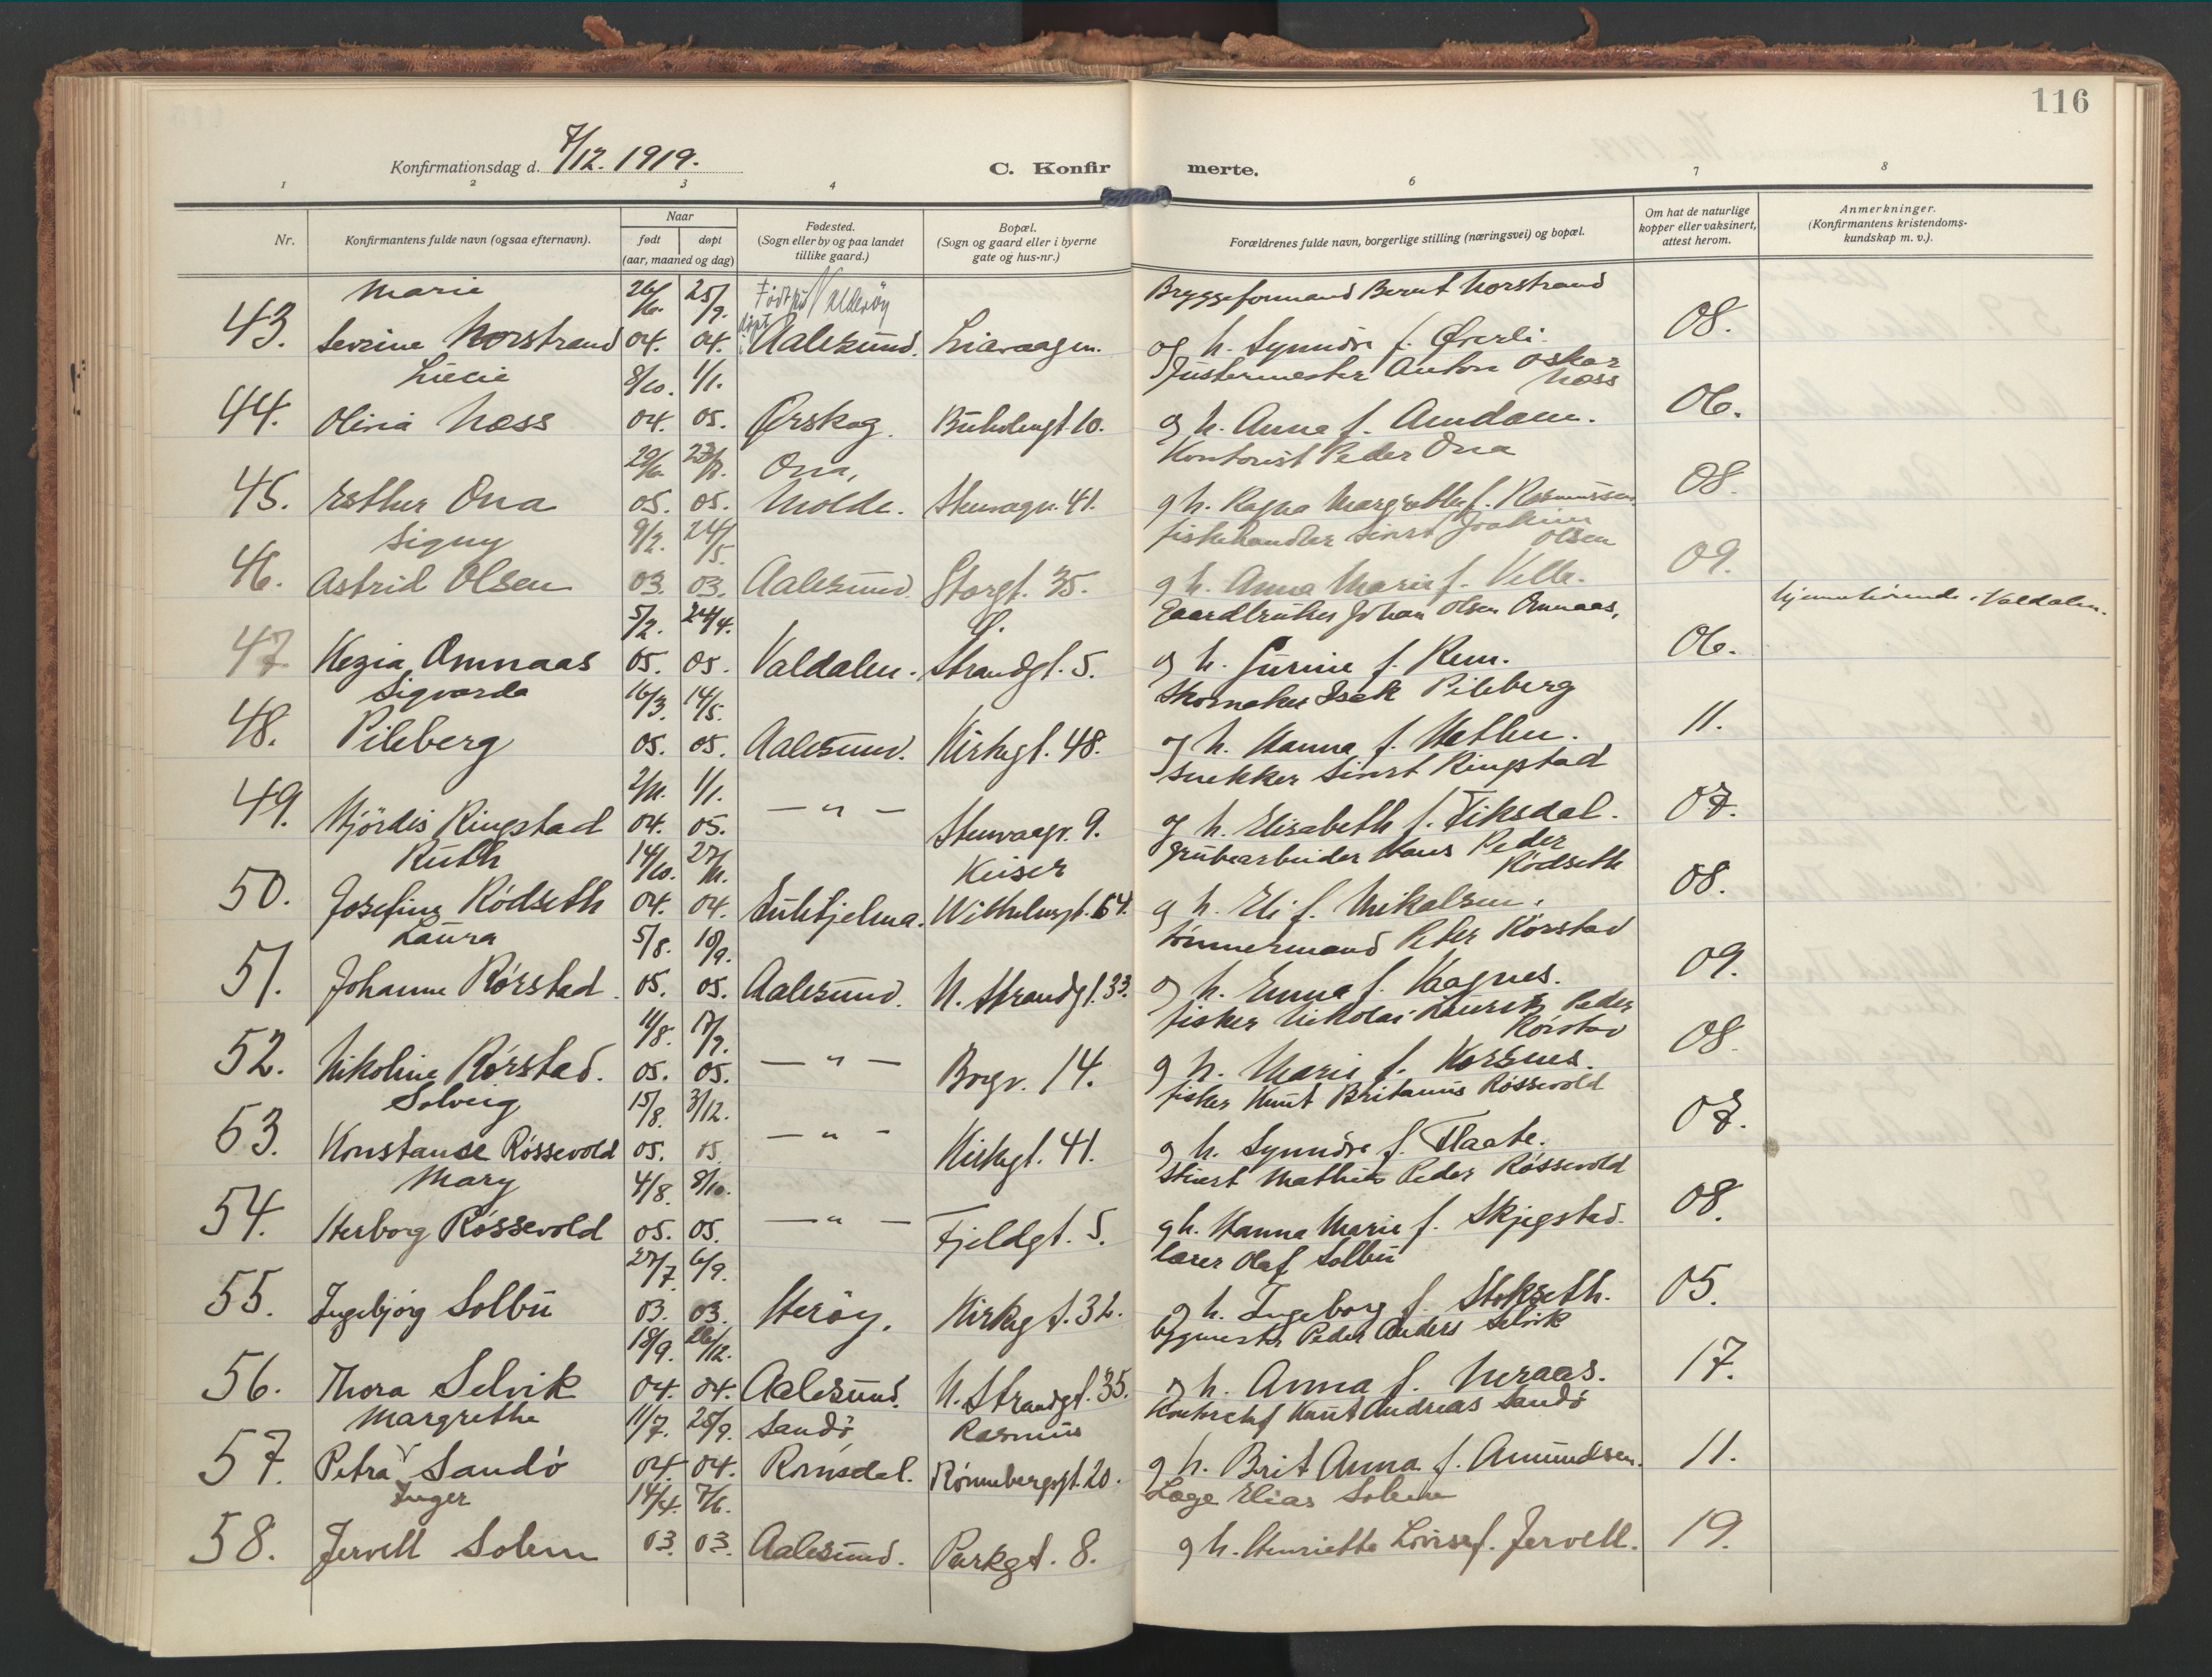 116
Konfirmationsdag d. 7/12. 1919.
C. Konfirmerte.
1 2 3 4 6 7 8
Nr.
Konfirmantens fulde navn (ogsaa efternavn).
Naar
født
døpt
(aar, maaned og dag)
Fødested.
(Sogn eller by og paa landet
tillike gaard.)
Bopæl.
(Sogn og gaard eller i byerne
gate og hus-nr.)
Forældrenes fulde navn, borgerlige stilling (næringsvei) og bopæl.
Om hat de naturlige
kopper eller vaksinert,
attest herom.
Anmerkninger.
(Konfirmantens kristendoms-
kundskap m. v.).
Marie 25/9. Født på Valderøy Bryggeformand Bernt Norstrand
43. Severine Norstrand 04. 04. døpt i Aalesund. Liavaagen. og h. Synnøve f. Øverli. 08.
Lucie 8/10. 1/1. Justermester Anton Oskar Næss
44. Olivia Næss 04. 05. Ørskog. Buholmgt. 10. og h. Anna f. Amdam. 06.
Ona, Kontorist Peder Ona
45. Esther Ona 05. 05. Molde. Stenvagv. 41. g h. Ragna Margrethe f. Rasmussen 08.
Signy 9/2. 24/5. fiskehandler Sivert Joakim Olsen
46. Astrid Olsen 03. 03. Aalesund. Storgt. 35. g h. Anna Marie f. Velle. 09.
5/2. 24/4. Gaardbruker Johan Olsen Omnaas, hjemmehørende i Valdalen.
47. Kezia Omnaas 05. 05. Valdalen. Strandgt. 5. og h. Gurine f. Rem. 06.
Sigvarda 16/3. 14/5. Skomaker Isak Pileberg
48. Pileberg 05. 05. Aalesund. Kirkegt. 48. og h. Hanna f. Hetlen. 11.
2/11. 1/1. Snekker Sivert Ringstad
49. Hjördis Ringstad 04. 05. — " — Stenvaagv. 9. og h. Elisabeth f. Fiksdal. 07.
Ruth 14/10. 27/11. Keiser Grubearbeider Hans Peder Rødseth
50. Josefine Rødseth 04. 04. Sulitjelma. Wilhelmsgt. 64. g h. Eli f. Mikalsen. 08.
Laura 5/8. 10/9. tømmermand Peter Rørstad
51. Johanne Rørstad. 05. 05. Aalesund. N. Strandgt. 33. og h. Emma f. Vagnes. 09.
11/8. 17/9. fisker Nikolai Laurits Peder Rørstad
52. Nikoline Rørstad. 05. 05. — " — Borgv. 14. g h. Marie f. Korsnes. 08.
Solveig 15/8. 3/12. fisker Knut Britanus Røssevold
53. Konstanse Røssevold 05. 05. — " — Kirkegt. 41. g h. Synnöve f. Flaate. 07.
Mary 4/8. 8/10. Stuert Mathias Peder Røssevold
54. Herborg Røssevold 05. 05. — " — Fjeldgt. 5. g h. Hanna Marie f. Skjegstad. 08.
27/7. 6/9. lærer Olaf Solbu
55. Ingebjørg Solbu 03. 03. Herøy. Kirkegt. 32. g h. Ingeborg f. Stokseth. 05.
18/9. 26/12. bygmester Peder Anders Selvik
56. Thora Selvik 04. 04. Aalesund. N. Strandgt. 35. g h. Anna f. Neraas. 17.
Margrethe 11/7. 25/9. Sandø Rasmus Kontorchef Knut Andreas Sandø
57. Petra Sandø 04. 04. Romsdal. Rønnebergsgt. 20. g h. Brit Anna f. Amundsen. 11.
Inger 14/4. 7/6. Læge Elias Solem
58. Jervell Solem 03. 03. Aalesund. Parkgt. 8. g h. Henriette Lovise f. Jervell. 19.